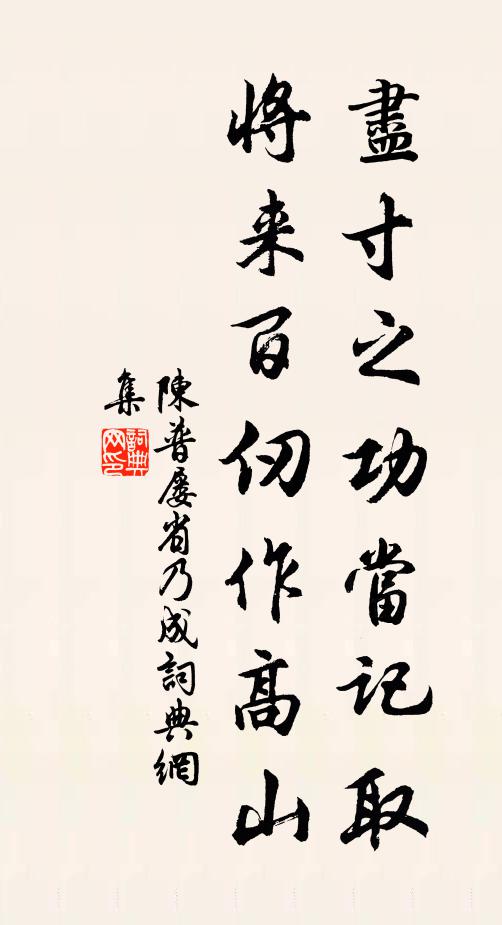 盡寸之功當記取
將来百仞作高山
陳普屢省乃成詞典網
集
詞典
网印